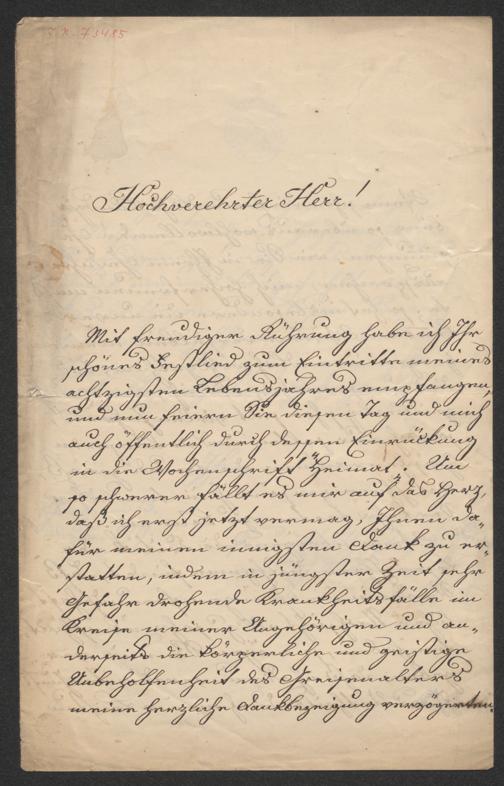 I. N. 73485
Hochverehrter Herr!
Mit freudiger Rührung habe ich Ihr
schönes Festlied zum Eintritte meines
achtzigsten Lebensjahres empfangen,
und nun feiern Sie diesen Tag und mich
auch öffentlich durch dessen Einrückung
in die Wochenschrift "Heimat". Um
so schwerer fällt es mir auf das Herz,
daß ich erst jetzt vermag, Ihnen da-
für meinen innigsten Dank zu er-
statten, indem in jüngster Zeit sehr
Gefahr drohende Krankheitsfälle im
Kreise meiner Angehörigen und an-
derseits die körperliche und geistige
Unbeholfenheit des Greisenalters
meine herzliche Dankbezeigung verzögerten.